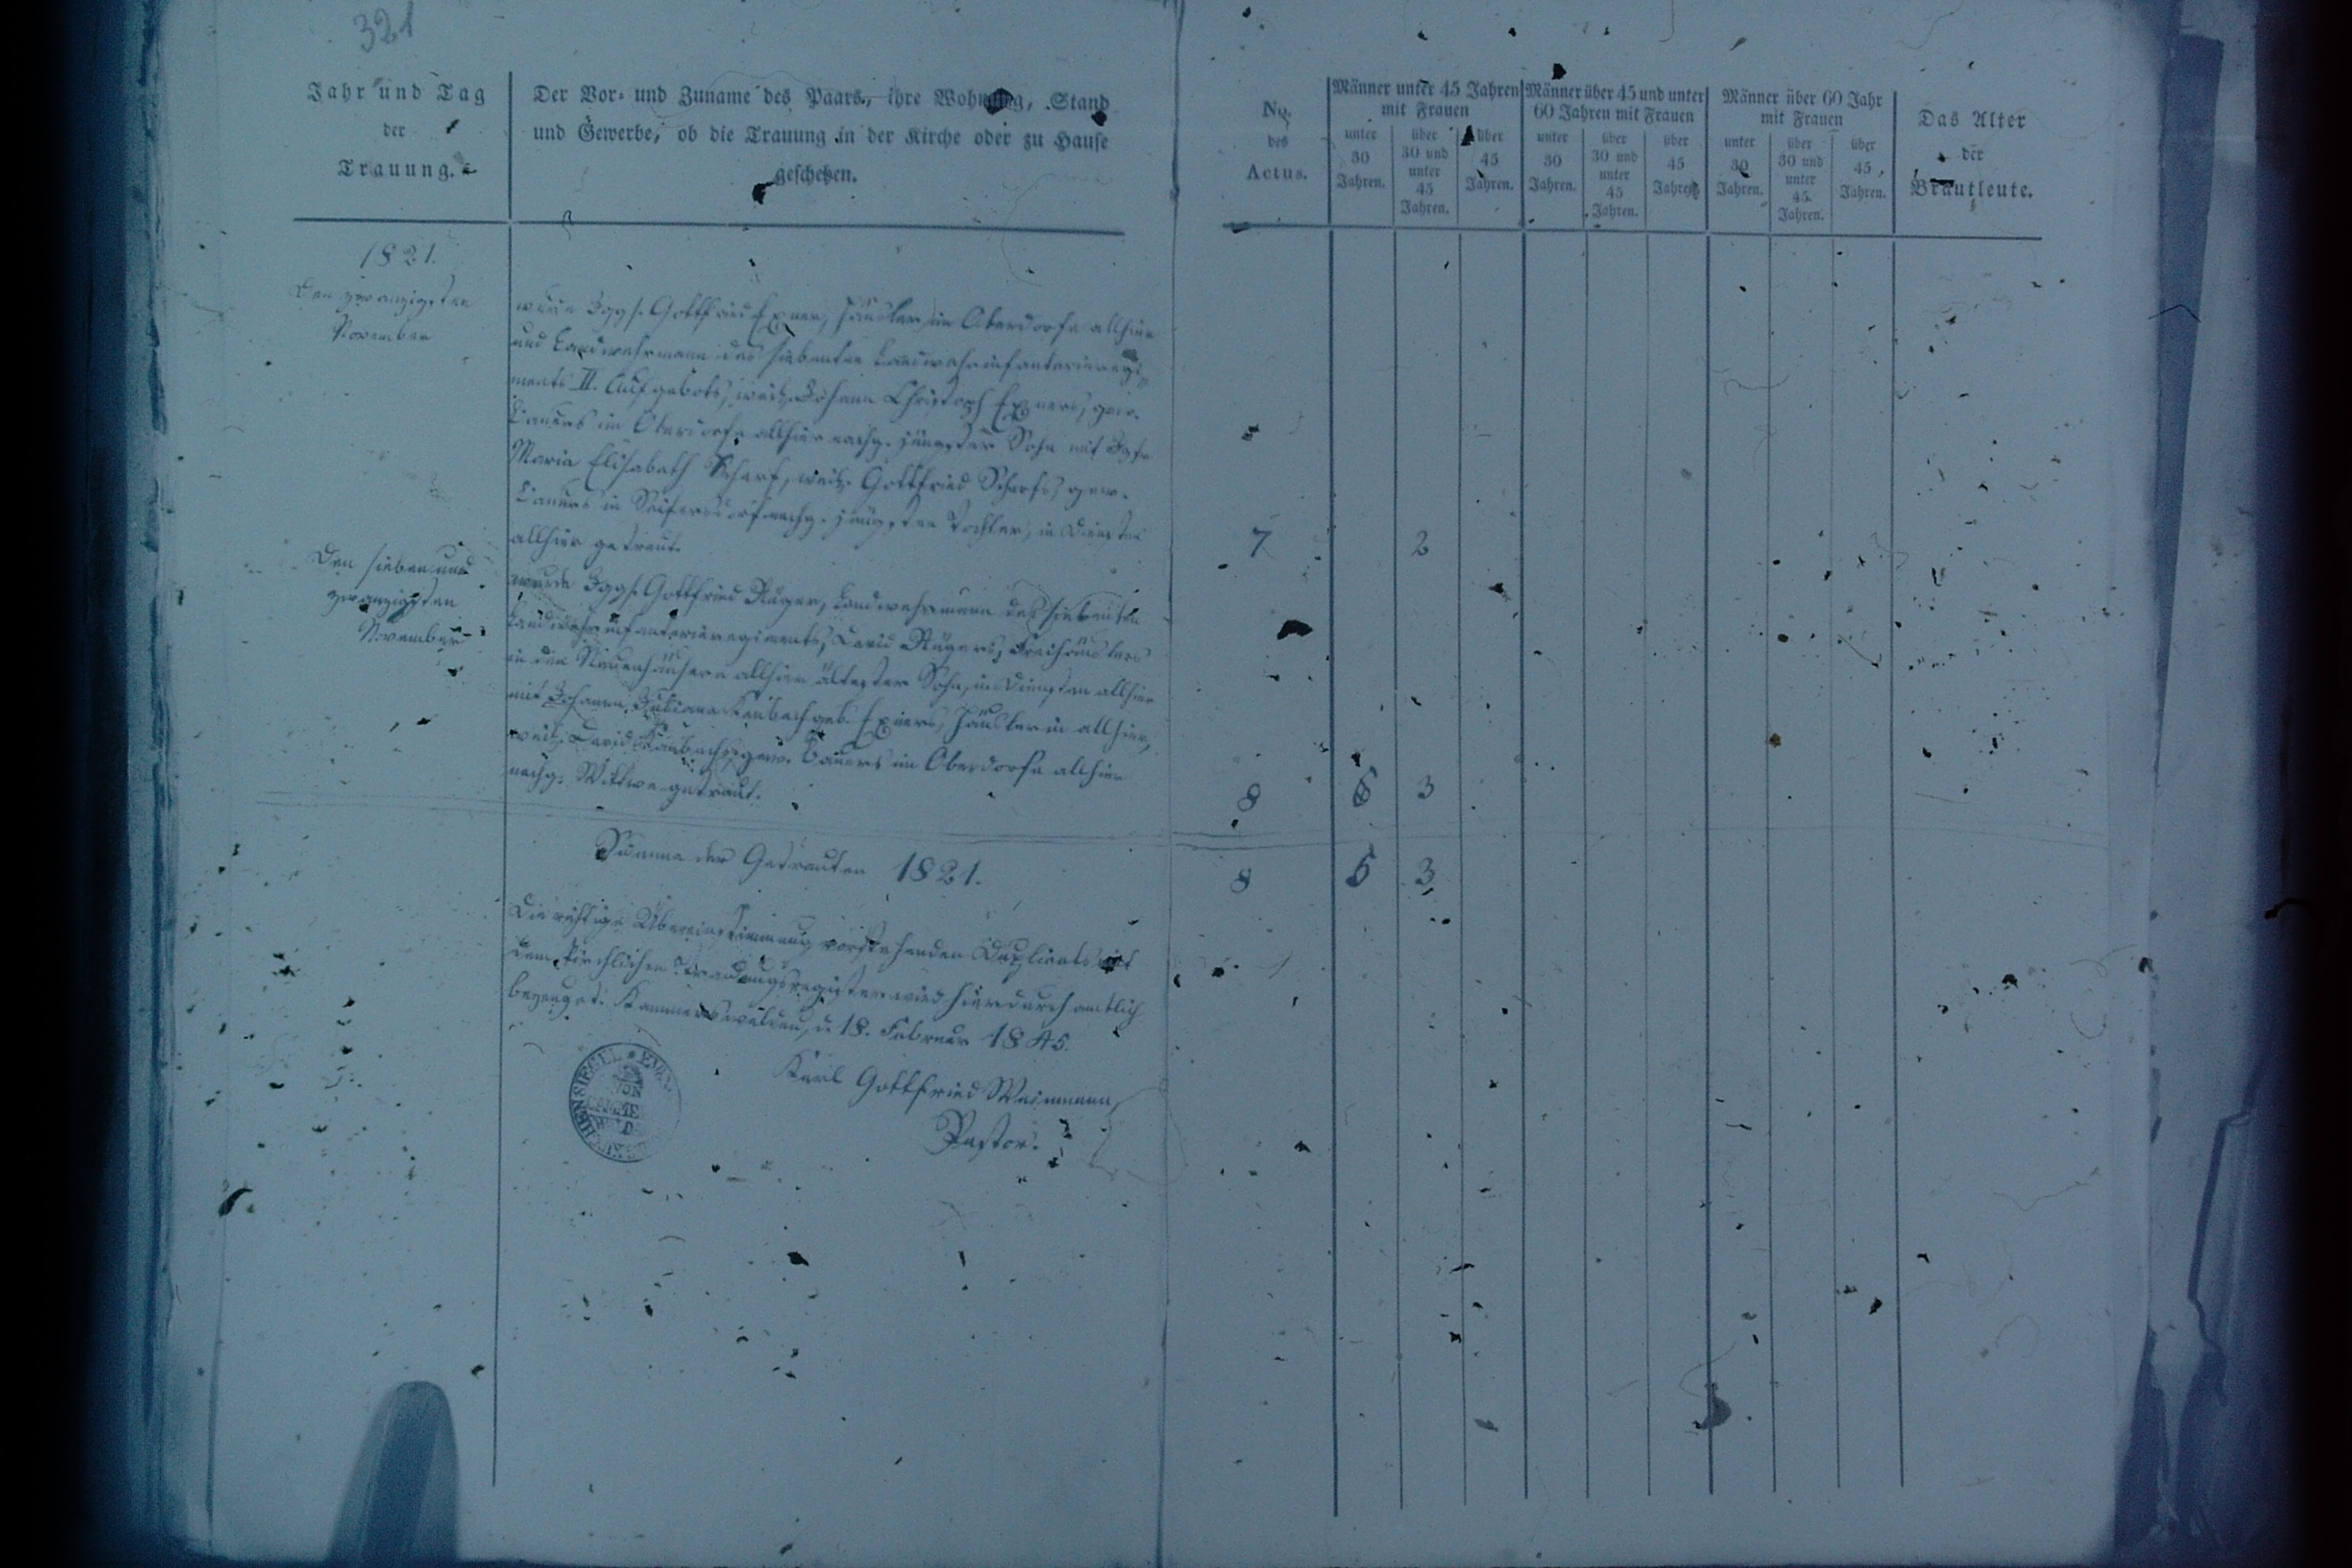 321
Jahr und Tag
der
Trauung.
Der Vor- und Zuname des Paars, ihre Wohnung, Stand
und Gewerbe, ob die Trauung in der Kirche oder zu Hause
geschehen.
No.
des
Actus.
Männer unter 45 Jahren
mit Frauen
unter
30
Jahren.
über
30 und
unter
45
Jahren.
über
45
Jahren.
Männer über 45 und unter
60 Jahren mit Frauen
unter
30
Jahren.
über
30 und
unter
45
Jahren.
über
45
Jahren.
Männer über 60 Jahr
mit Frauen
unter
30
Jahren.
über
30 und
unter
45.
Jahren.
über
45
Jahren.
Das Alter
der
Brautleute.
1821.
Den zwanzigsten
November
wurde Jggs. Gottfried Exner, Häusler im Oberdorfe allhier
und Landwehrmann des siebenten Landwehrinfanterieregi-
ments II. Aufgebots, weil. Johann Christoph Exners, gew.
Bauers im Oberdorfe allhier nachg. jüngster Sohn mit Jgfr
Maria Elisabeth Scharf, weil. Gottfried Scharfs, gew.
Bauers in Seifersdorf nachg. jüngsten Tochter, in Diensten
allhier getraut.
7 2
Den sieben und
zwanzigsten
November
wurde Jggs. Gottfried Rüger, Landwehrmann des siebenten
Landwehrinfanterieregiments, David Rügers, Freihäuslers
in den Neuenhäusern allhier ältester Sohn, in Diensten allhier
mit Johanna Juliana geb. Exners, Häuslerin allhier,
weil. David gew. Bauers im Oberdorfe allhier
nachg. Wittwe getraut.
8 3
Summa der Getrauten 1821.
8 5 3
Die richtige Übereinstimmung vorstehenden Duplicats mit
dem kirchlichen Trauungsregister wird hierdurch amtlich
bezeuget. Kammerswaldau, d. 18. Februar 1845.
Karl Gottfried Weinmann,
Pastor.